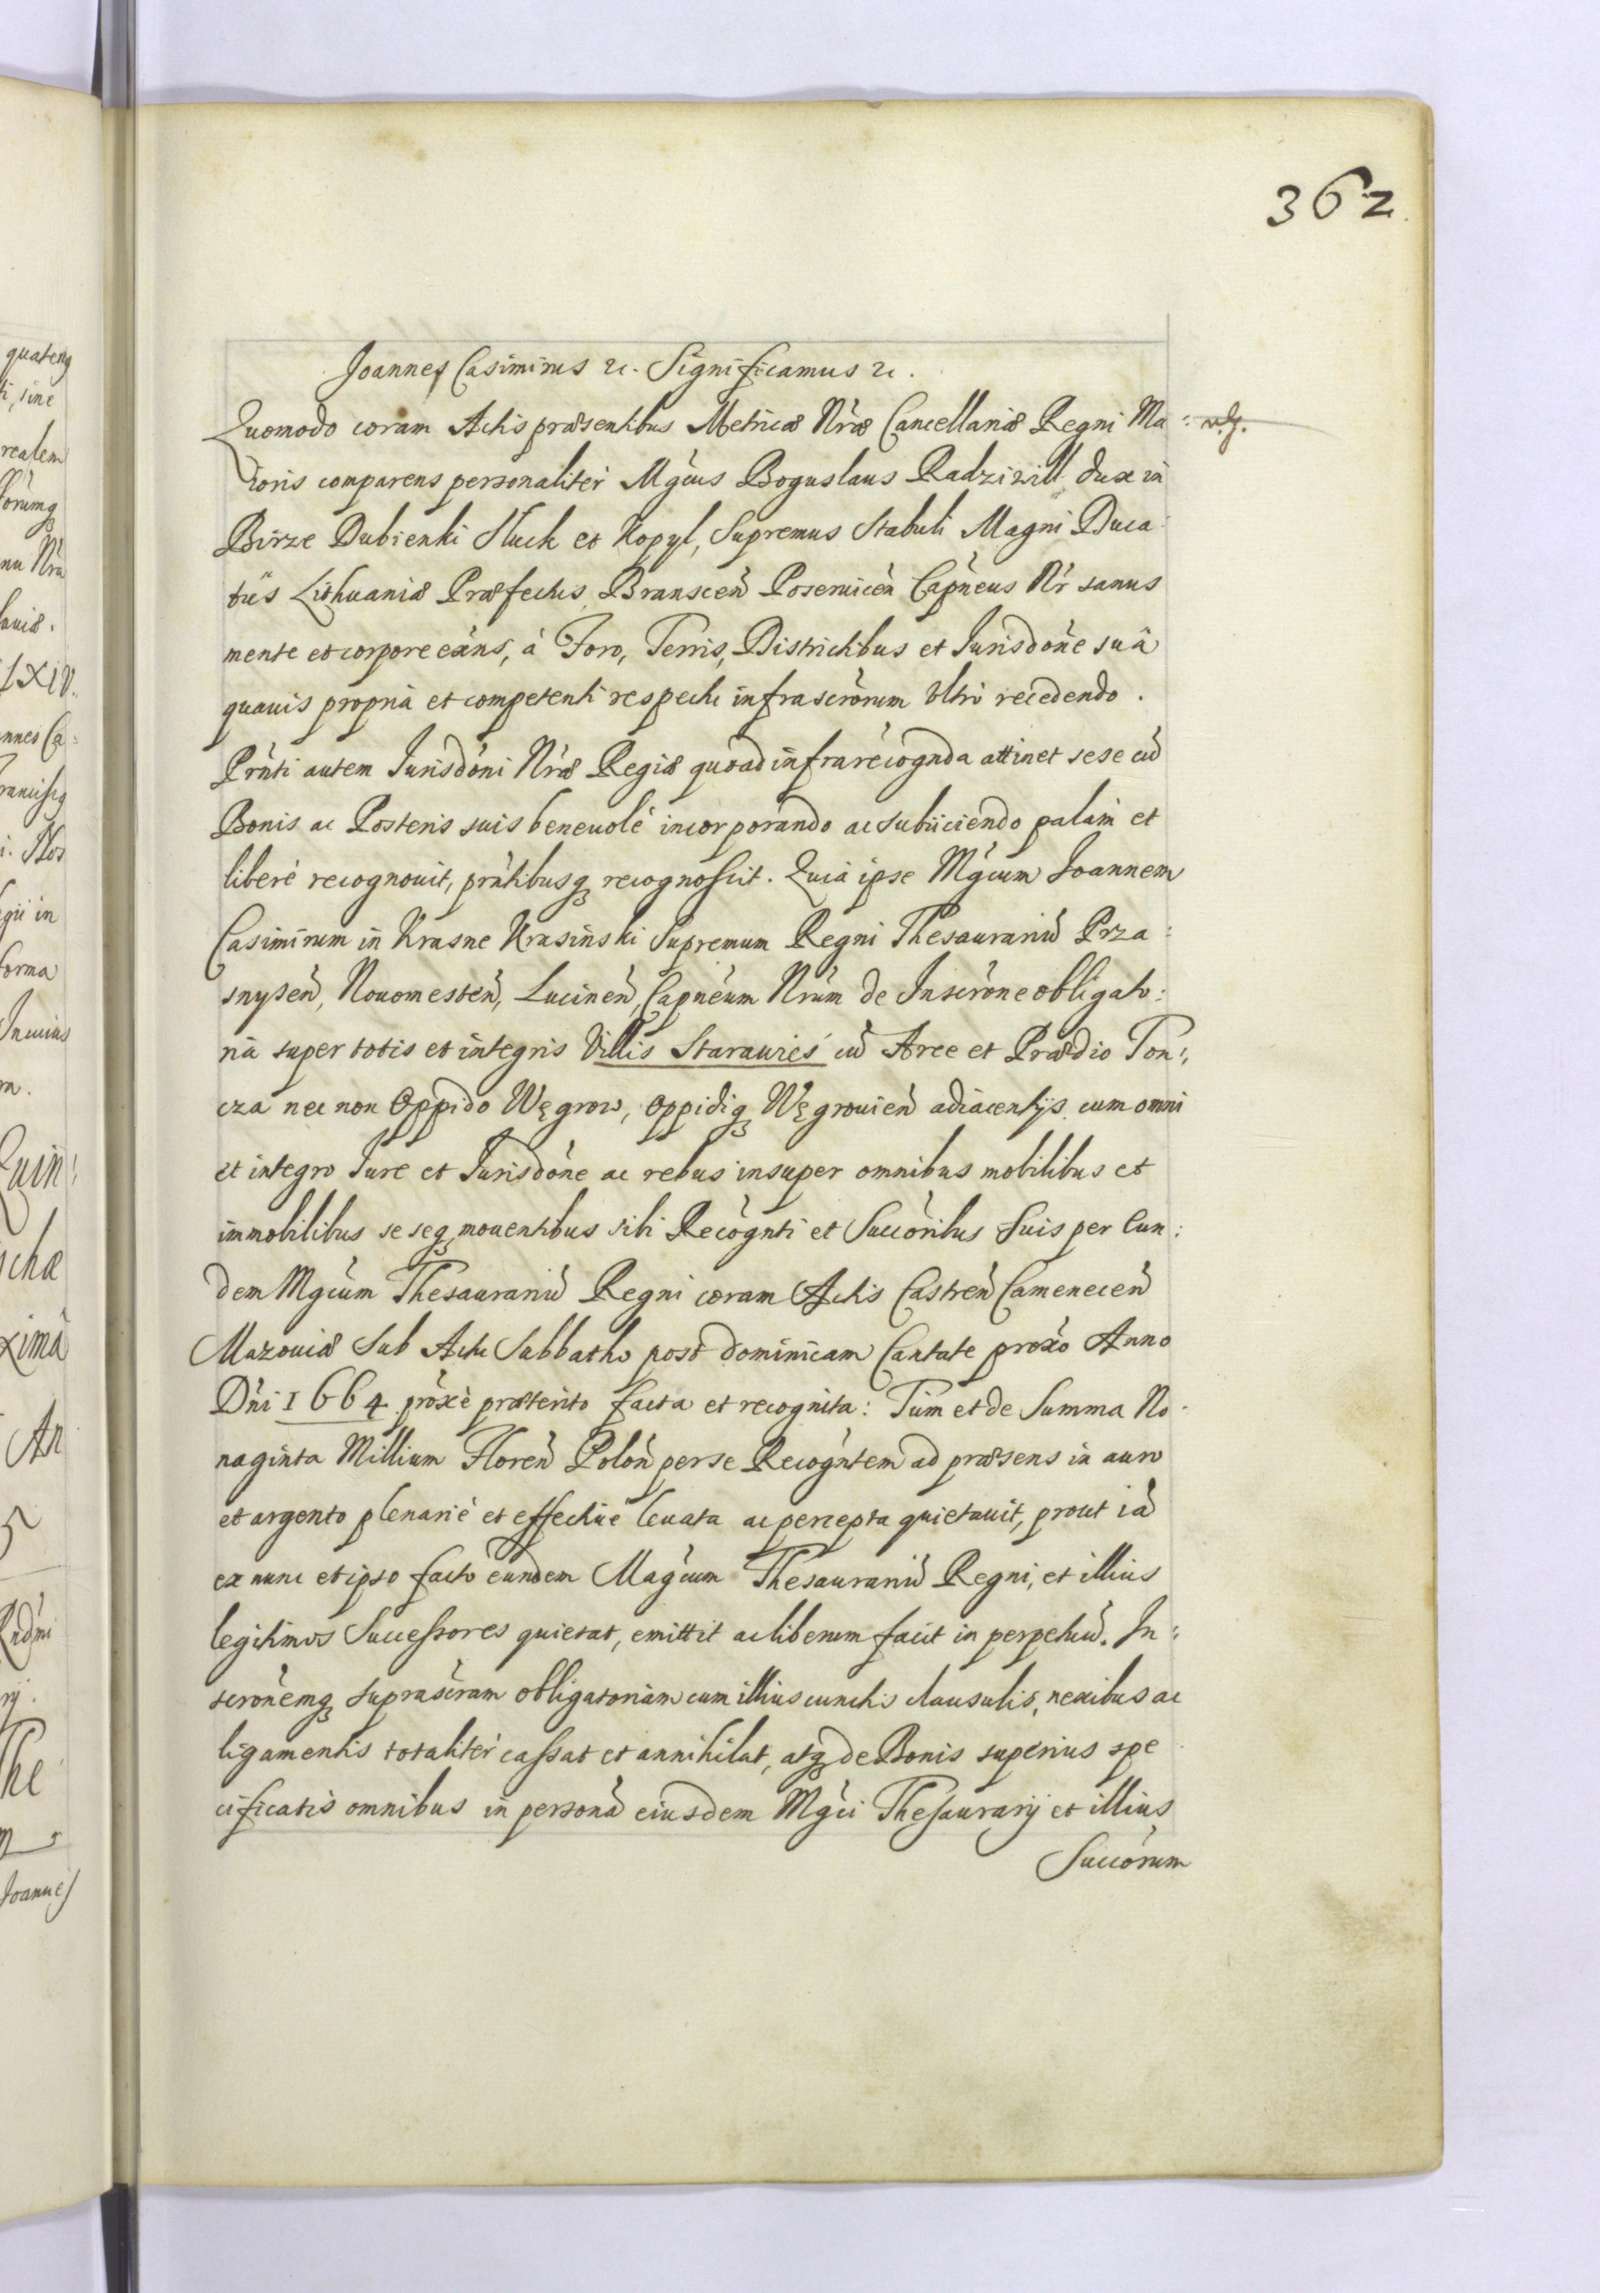 362
Joannes Casimirus &c. Significamus &c.
Quomodo coram Actis præsentibus Metricæ Nr̀æ Cancellariæ Regni Ma:
ioris comparens personaliter Mg̀cus Boguslaus Radziwill dux in
Birze Dubienki Sluck et Kopyl, Supremus Stabuli Magni Duca:
tus Lithuaniæ Præfectus Branscen̄ Poseruicen̄ Capǹeus Nr̀ sanus
mente et corpore exàns, à Foro, Terris, Districtibus et Jurisdòne suâ
quauis propria et competenti respectu infrascròrum Vltrò recedendo.
Prǹti autem Jurisdòni Nr̀æ Regiæ quoad infrarecògnda attinet sese cū
Bonis ac Posteris suis beneuolè incorporando ac subiiciendo palàm et
liberè recognouit, prǹtibusq; recognoscit. Quia ipse Mg̀cum Joannem
Casimirum in Krasne Krasinski Supremum Regni Thesaurariū Prza:
snysen̄, Nouomesten̄, Lucinen̄, Capnèum Nr̀um de Inscròne obligato:
ria super totis et integris Villis Starawies cū Arce et Prædio Ton:
cza nec non Oppido Węgrow, oppidiq; Węgrouien̄ adiacentijs cum omni
et integro Jure et Jurisdòne ac rebus insuper omnibus mobilibus et
immobilibus se seq; mouentibus sibi Recògnti et Succòribus Suis per Eun:
dem Mgc̀um Thesaurariū Regni coram Actis Castren̄ Camenecen̄
Mazouiæ Sub Actu Sabbatho post dominicam Cantate proxò Anno
Dǹi 1664 pròxè præterito facta et recognita: Tùm et de Summa No:
naginta Millium Floren̄ Polon̄ per se Recògntem ad præsens in auro
et argento plenariè et effectiuè leuata ac percepta quietauit, prout iā
ex nunc et ipso facto eundem Magc̀um Thesaurariū Regni, et illius
legitimos Successores quietat, emittit ac liberum facit in perpetuū. In:
scrònemq; suprascr̀am obligatoriam cum illius cunctis clausulis, nexibus ac
ligamentis totaliter cassat et annihilat, atq; de Bonis superius spe
cificatis omnibus in personā eiusdem Mg̀ci Thesaurarij et illius
Succòrum